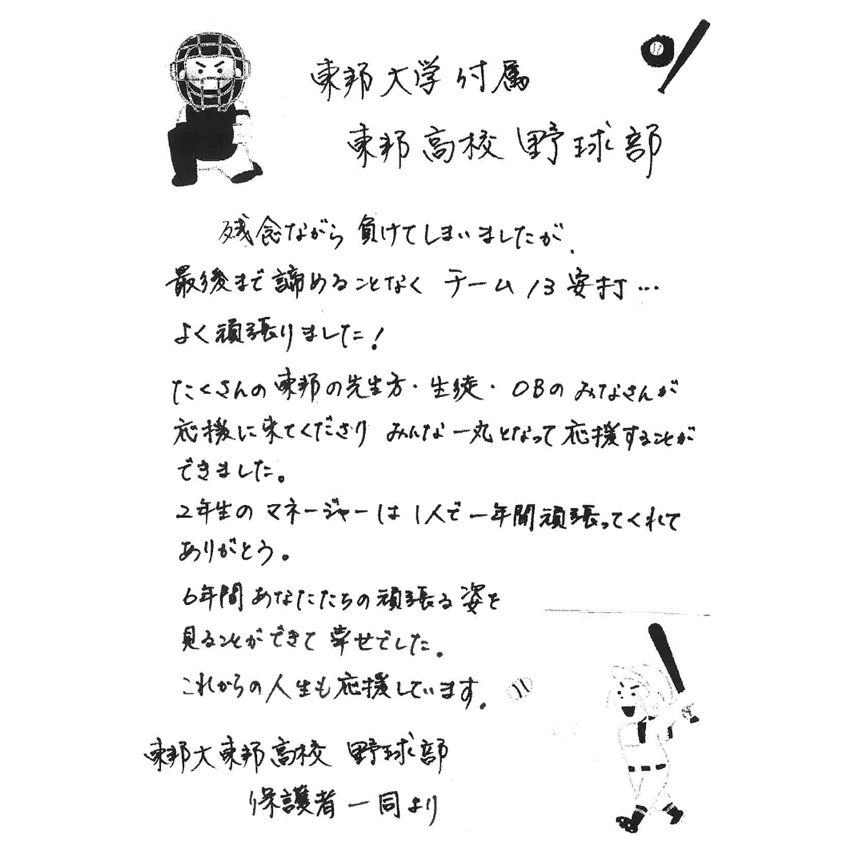 東邦大学付属
東邦高校 野球部
残念ながら 負けてしまいましたが、
最後まで諦めることなく チーム13安打…
よく頑張りました!
たくさんの東邦の先生方・生徒・OBのみなさんが
応援に来てくださり みんな一丸となって応援することが
できました。
2年生のマネージャーは1人で一年間頑張ってくれて
ありがとう。
6年間あなたたちの頑張る姿を
見ることができて幸せでした。
これからの人生も応援しています。
東邦大東邦高校 野球部
保護者一同より